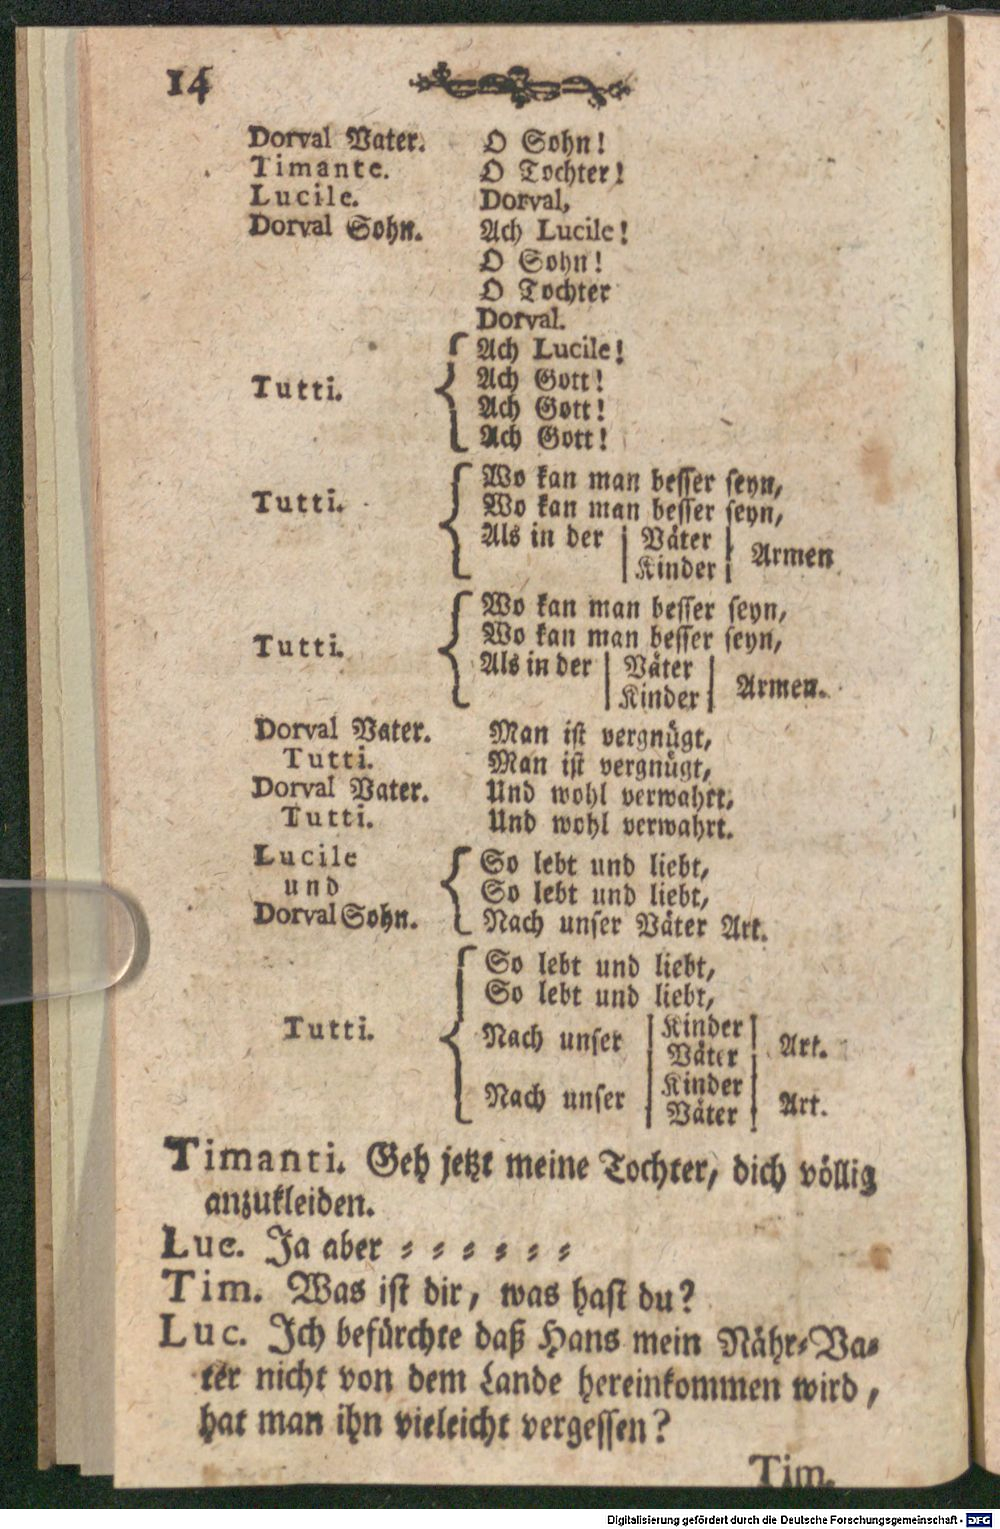 14
Dorval Vater. O Sohn!
Timante. O Tochter!
Lucile. Dorval,
Dorval Sohn. Ach Lucile!
O Sohn!
O Tochter
Dorval.
Ach Lucile!
Tutti. Ach Gott!
Ach Gott!
Ach Gott!
Wo kan man besser seyn,
Tutti. Wo kan man besser seyn,
Als in der Väter Armen
Kinder
Wo kan man besser seyn,
Tutti. Wo kan man besser seyn,
Als in der Väter Armen.
Kinder
Dorval Vater. Man ist vergnügt,
Tutti. Man ist vergnügt,
Dorval Vater. Und wohl verwahrt,
Tutti. Und wohl verwahrt.
Lucile So lebt und liebt,
und So lebt und liebt,
Dorval Sohn. Nach unser Väter Art.
So lebt und liebt,
So lebt und liebt,
Tutti. Nach unser Kinder Art.
Väter
Nach unser Kinder Art.
Väter
Timanti. Geh jetzt meine Tochter, dich völlig
anzukleiden.
Luc. Ja aber = = = = = =
Tim. Was ist dir, was hast du?
Luc. Ich befürchte daß Hans mein Nähr=Va=
ter nicht von dem Lande hereinkommen wird,
hat man ihn vieleicht vergessen?
Tim.
Digitalisierung gefördert durch die Deutsche Forschungsgemeinschaft - DFG